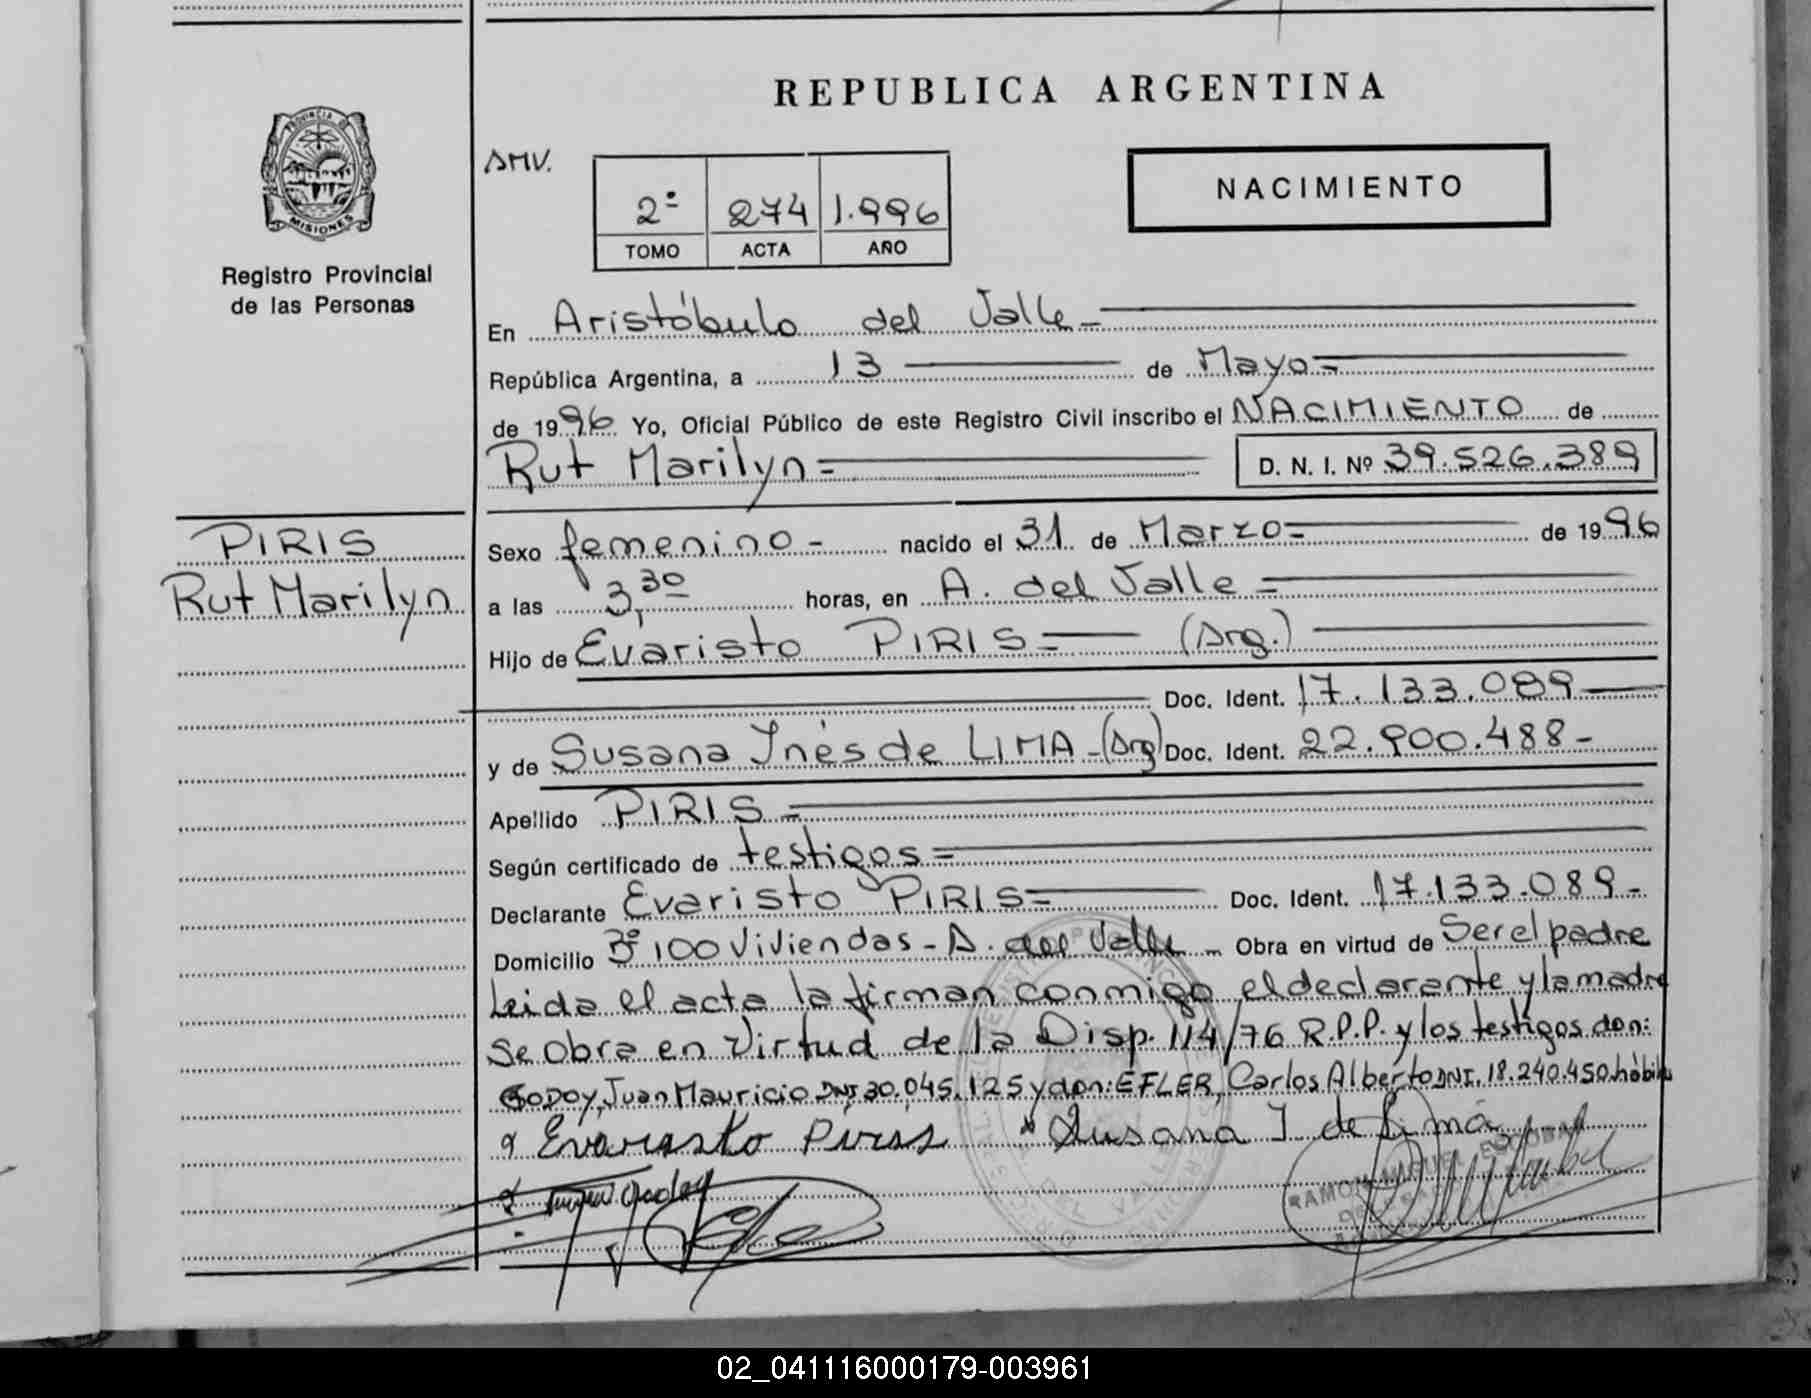 REPUBLICA ARGENTINA
PROVINCIA DE
MISIONES
Registro Provincial
de las Personas
AMV.
2º 274 1.996
TOMO ACTA AÑO
NACIMIENTO
En Aristóbulo del Valle
República Argentina, a 13 de Mayo
de 1996 Yo, Oficial Público de este Registro Civil inscribo el NACIMIENTO de
Rut Marilyn D. N. I. Nº 39.526.389
PIRIS
Rut Marilyn
Sexo femenino nacido el 31 de Marzo de 1996
a las 3,30 horas, en A. del Valle
Hijo de Evaristo PIRIS (Arg.)
Doc. Ident. 17.133.089
y de Susana Inés de LIMA (Arg) Doc. Ident. 22.900.488
Apellido PIRIS
Según certificado de testigos
Declarante Evaristo PIRIS Doc. Ident. 17.133.089
Domicilio 3º 100 Viviendas - A. del Valle - Obra en virtud de Ser el padre
Leida el acta la firman conmigo el declarante y la madre
Se obra en Virtud de la Disp. 114/76 R.P.P. y los testigos don:
GODOY, Juan Mauricio DNI 30.045.125 y don: EFLER, Carlos Alberto DNI. 18.240.450 hábiles
Evaristo Piris Susana I. de Lima
Godoy
RAMON MIGUEL ESCOBAR
02_041116000179-003961